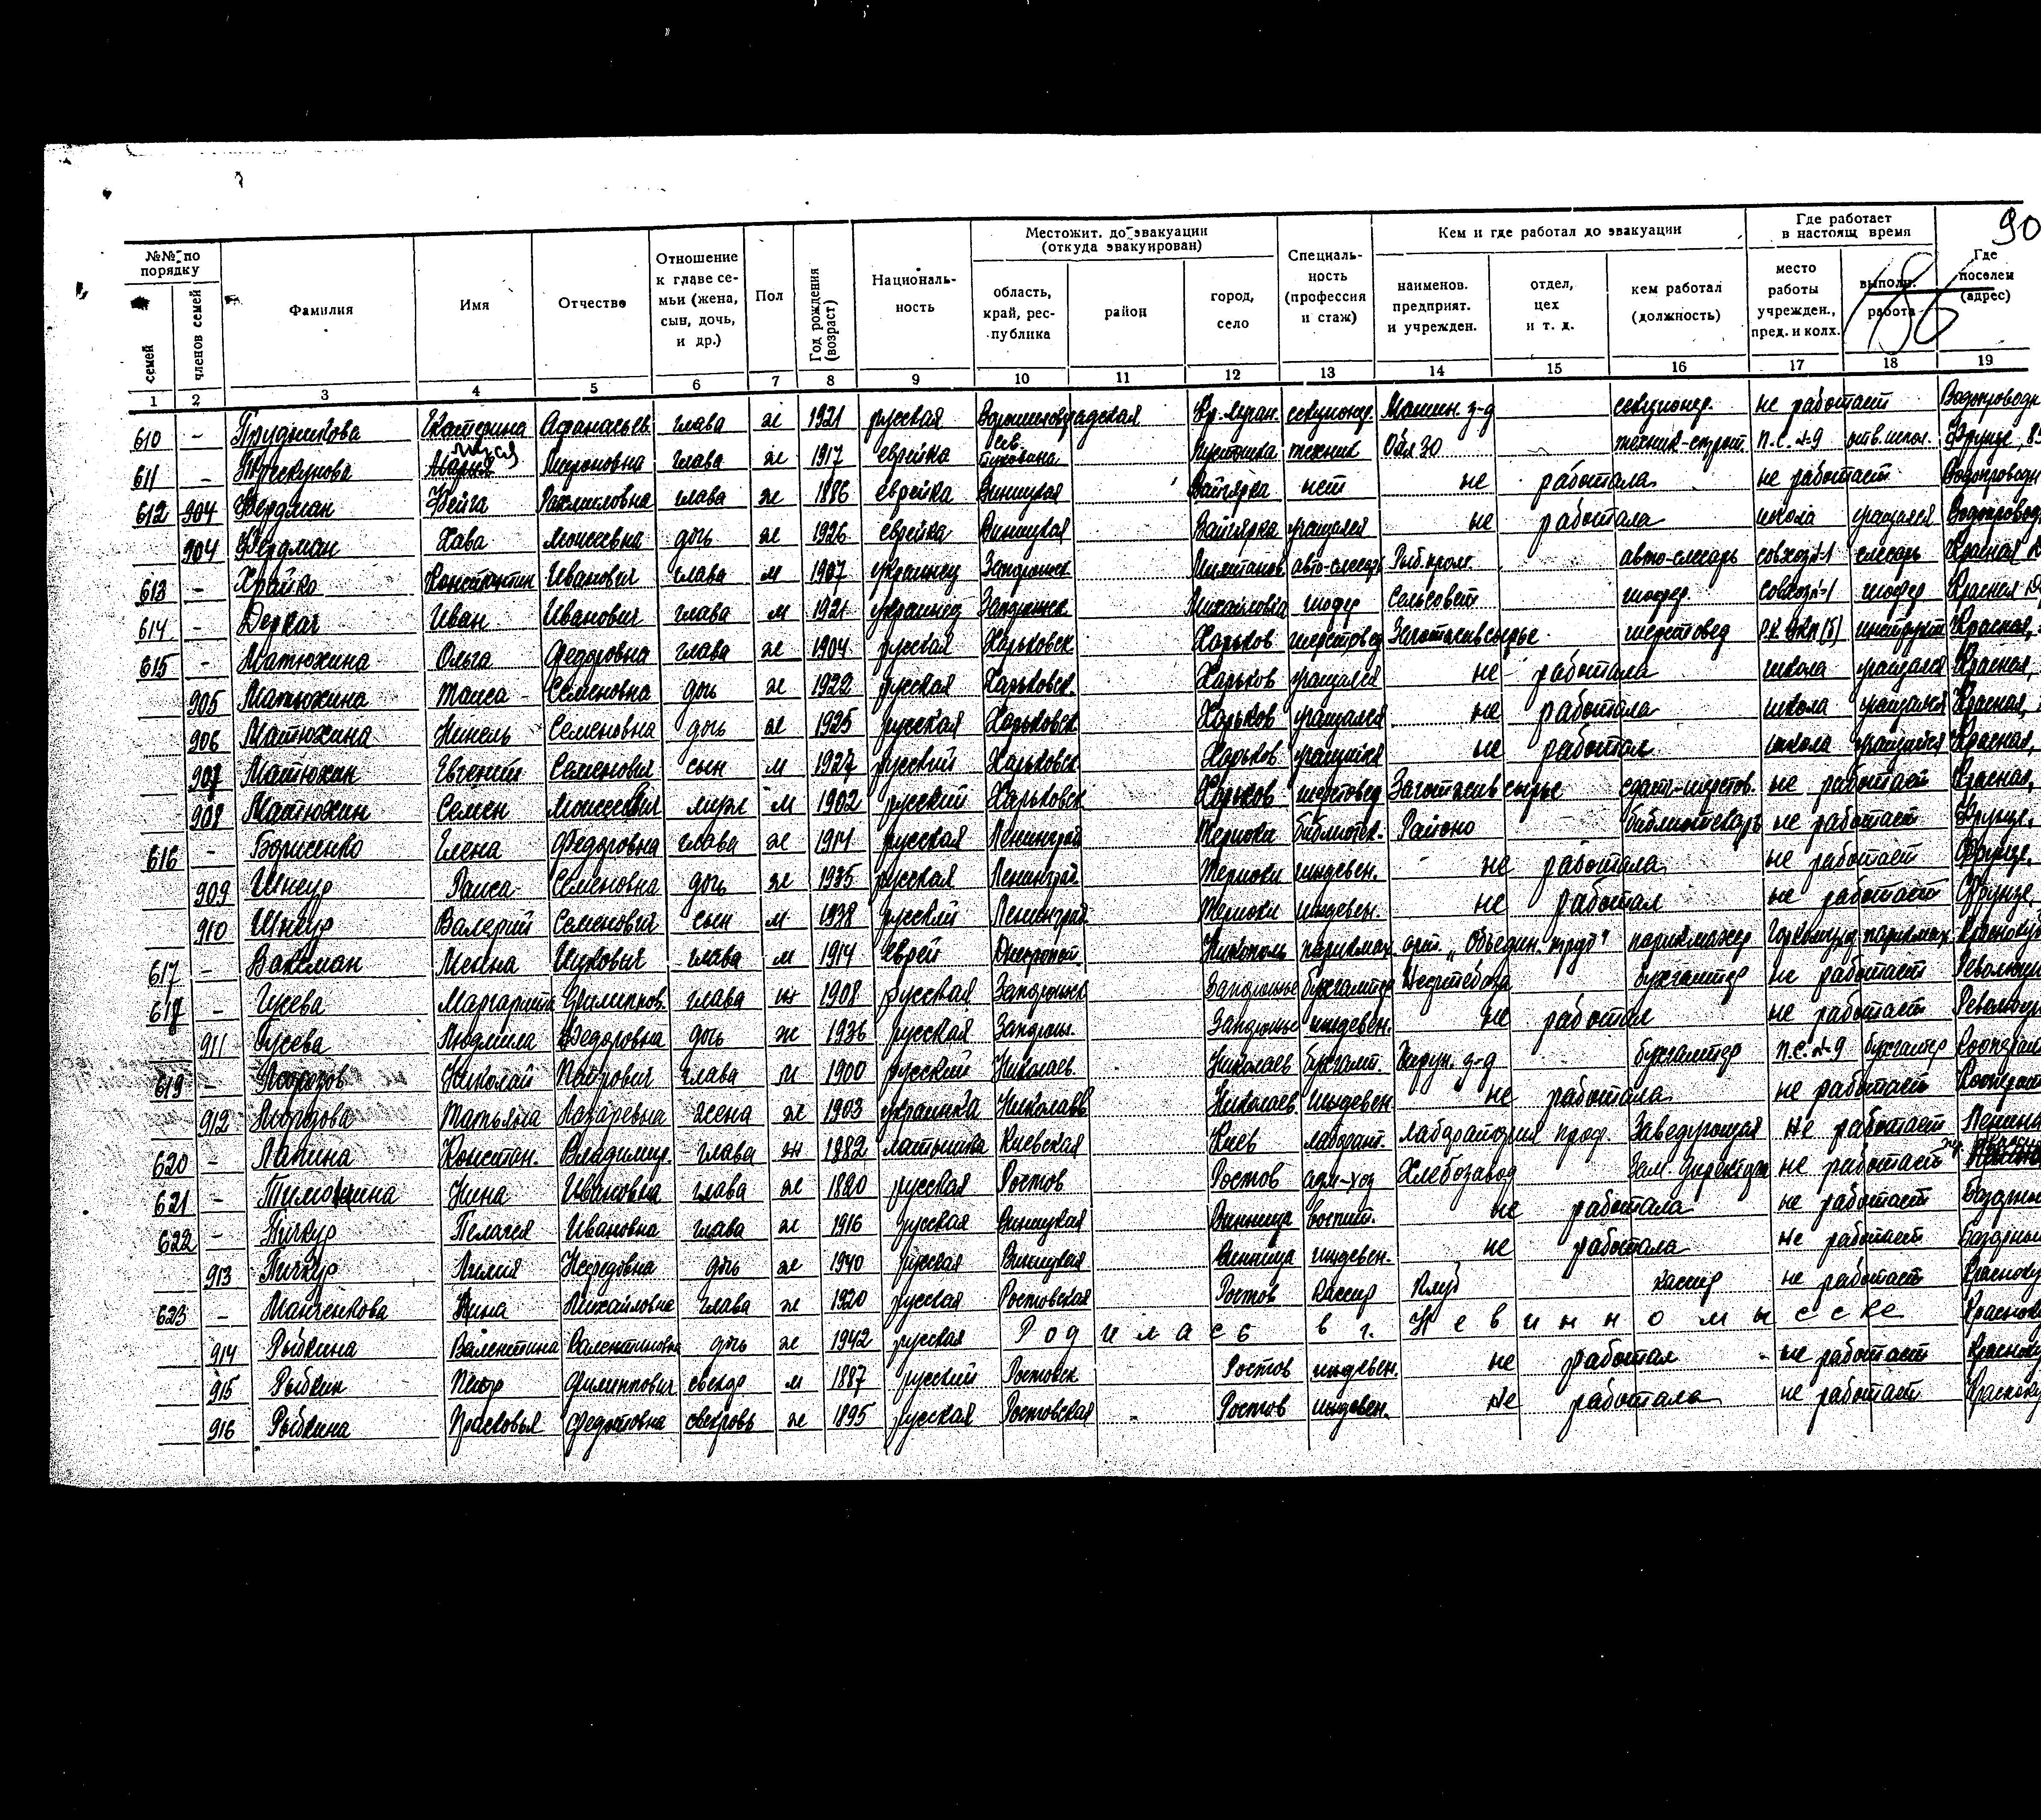 90
186
№№ по порядку | Фамилия | Имя | Отчество | Отношение к главе семьи (жена, сын, дочь, и др.) | Пол | Год рождения (возраст) | Националь-ность | Местожит. до эвакуации (откуда эвакуирован) | Специаль-ность (профессия и стаж) | Кем и где работал до эвакуации | Где работает в настоящ время | Где поселем (адрес)
семей | членов семей | область, край, рес-публика | район | город, село | наименов. предприят. и учрежден. | отдел, цех и т. д. | кем работал (должность) | место работы учрежден., пред. и колх. | выполн. работа
1 | 2 | 3 | 4 | 5 | 6 | 7 | 8 | 9 | 10 | 11 | 12 | 13 | 14 | 15 | 16 | 17 | 18 | 19
610 | - | Прудникова | Екатерина | Афанасьев. | глава | ж | 1921 | русская | Ворошиловградская | секционер. | Машин. з-д | секционер. | не работает
611 | - | Мироновна | глава | ж | 1917 | еврейка | Сев. Буковина | техник | техник-строит. | П.С. №9 | отв. испол. | Фрунзе, 8
612 | 904 | Фердман | Фейга | глава | ж | 1886 | еврейка | Виницкая | Вапнярка | нет | не работала | не работает | Водопроводн
904 | Фердман | Хава | Моисеевна | дочь | ж | 1926 | еврейка | Виницкая | Вапнярка | учащаяся | не работала | школа | учащаяся
613 | - | Храйко | Константин | Иванович | глава | м | 1907 | украинец | Запорожск | авто-слесарь | Рыб. пром. | авто-слесарь | совхоз №1 | слесарь | Красная
614 | - | Деркач | Иван | Иванович | глава | м | 1921 | украинец | Запорожск | Михайловка | шофер | Сельсовет | шофер | совхоз №1 | шофер | Красная
615 | - | Матюхина | Ольга | Федоровна | глава | ж | 1904 | русская | Харьковск | Харьков | шерстовед | Заготживсырье | шерстовед | Р.К. ВКП(б) | инструкт | Красная,
905 | Матюхина | Таиса | Семеновна | дочь | ж | 1922 | русская | Харьковск. | Харьков | учащаяся | не работала | школа | учащаяся | Красная,
906 | Матюхина | Нинель | Семеновна | дочь | ж | 1925 | русская | Харьковск | Харьков | учащаяся | не работала | школа | учащаяся | Красная,
907 | Матюхин | Евгений | Семенович | сын | м | 1927 | русский | Харьковск | Харьков | учащийся | не работал | школа | учащийся | Красная,
908 | Матюхин | Семен | Моисеевич | муж | м | 1902 | русский | Харьковск | Харьков | шерстовед | Заготживсырье | не работает | Красная,
616 | - | Борженко | Елена | Федоровна | глава | ж | 1914 | русская | Ленинград | Териоки | библиотек. | Районо | библиотекарь | не работает | Фрунзе,
909 | Шнеур | Раиса | Семеновна | дочь | ж | 1935 | русская | Ленинград | Териоки | иждевен. | не работала | не работает | Фрунзе,
910 | Шнеур | Валерий | Семенович | сын | м | 1938 | русский | Ленинград | Териоки | иждевен. | не работал | не работает | Фрунзе,
617 | - | Ваксман | глава | м | 1914 | еврей | Днепропет. | Никополь | парикмах. | арт. „Объедин. труд" | парикмахер | парикмах.
618 | - | Гусева | Маргарита | Филиппов. | глава | ж | 1908 | русская | Запорожск | Запорожье | бухгалтер | Нефтебаза | бухгалтер | не работает | Революци
911 | Гусева | Людмила | Федоровна | дочь | ж | 1936 | русская | Запорож. | Запорожье | иждевен. | не работал | не работает | Революци
619 | - | Морозов | Николай | Петрович | глава | м | 1900 | русский | Николаев. | Николаев | бухгалт. | бухгалтер | П.С. №9 | бухгалтер | Кооперати
912 | Морозова | Татьяна | Лазаревна | жена | ж | 1903 | украинка | Николаев | Николаев | иждевен. | не работала | не работает | Кооперат
620 | - | Лапина | Констан. | Владимир. | глава | ж | 1882 | латышка | Киевская | Киев | лаборант. | лаборатория проф. | Заведующая | не работает | Ленина
621 | - | Тимохина | Нина | Ивановна | глава | ж | 1820 | русская | Ростов | Ростов | адм-хоз | Хлебозавод | Зам. директора | не работает
622 | - | Пичкур | Пелагея | Ивановна | глава | ж | 1916 | русская | Виницкая | Винница | воспит. | не работала | не работает | Базарный
913 | Пичкур | Лилия | дочь | ж | 1940 | русская | Виницкая | Винница | иждевен. | не работала | не работает | Базарный
623 | - | Манченкова | Нина | Михайловна | глава | ж | 1920 | русская | Ростовская | Ростов | кассир | Клуб | кассир | не работает
914 | Рыбкина | Валентина | Валентиновна | дочь | ж | 1942 | русская | Родилась в г. Невинномысске
915 | Рыбкин | Петр | Филиппович | свекор | м | 1887 | русский | Ростовск | Ростов | иждевен. | не работал | не работает
916 | Рыбкина | Прасковья | Федотовна | свекровь | ж | 1895 | русская | Ростовская | Ростов | иждевен. | не работала | не работает